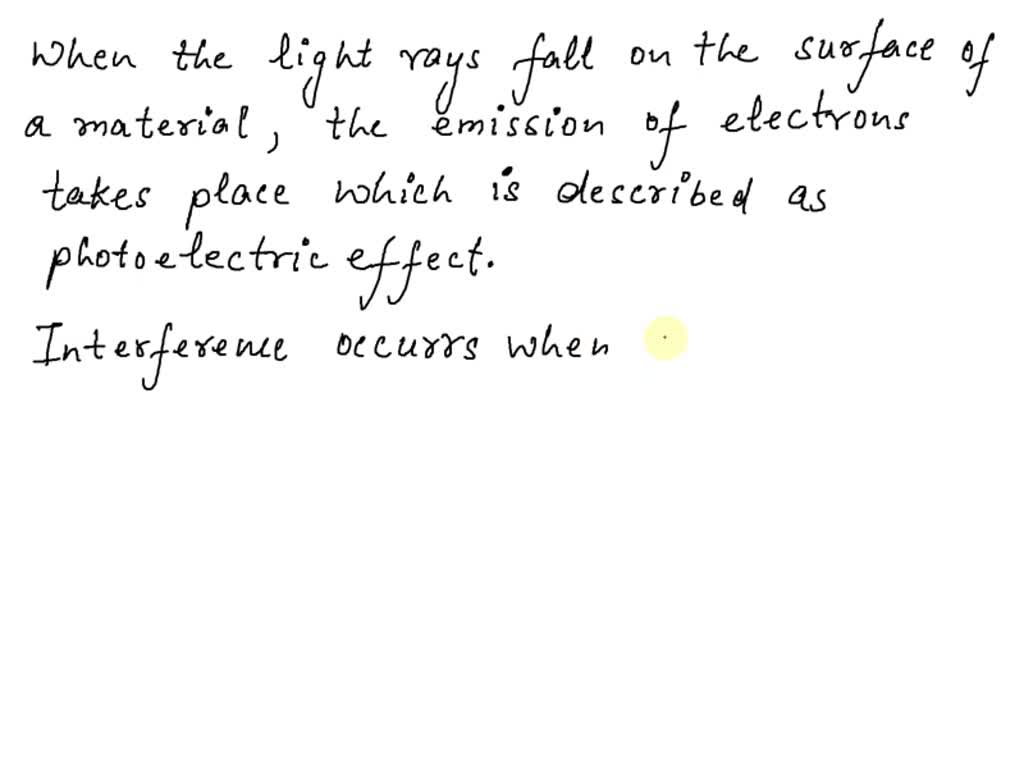 When the light rays fall on the surface of
a material, the emission of electrons
takes place which is described as
photoelectric effect.
Interference occurrs when